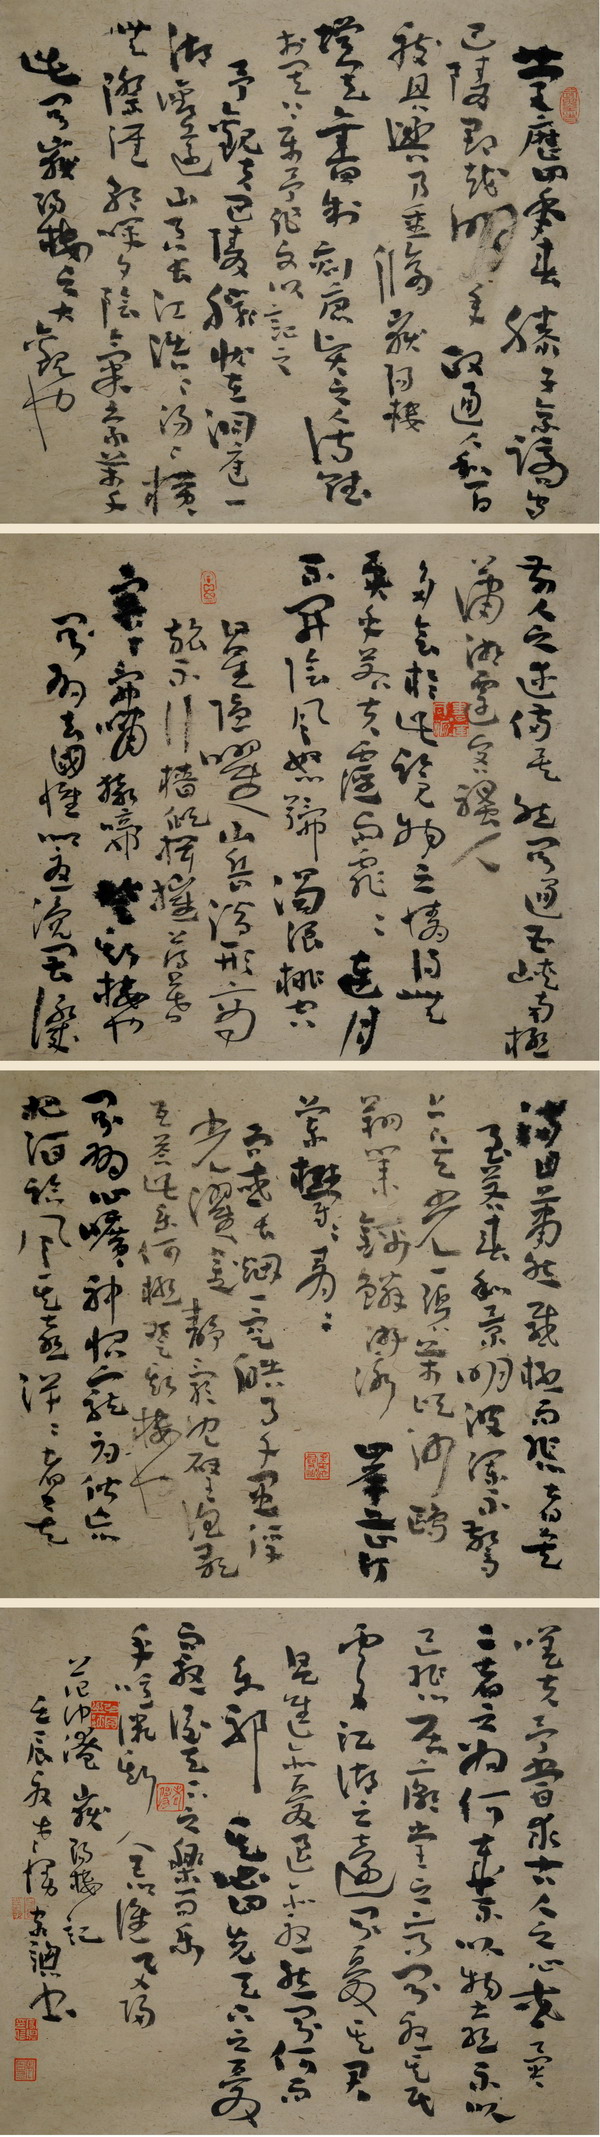 慶曆四年春滕子京謫守
巴陵郡越明年政通人和百
廢具興乃重脩嶽陽樓
增其舊制刻唐賢今人詩賦
於其上屬予作文以記之
予觀夫巴陵勝狀在洞庭一
湖銜遠山吞長江浩浩湯湯橫
無際涯朝暉夕陰氣象萬千
此則嶽陽樓之大觀也
前人之述備矣然則通巫峽南極
瀟湘遷客騷人
多會於此覽物之情得無
異乎若夫霪雨霏霏連月
不開陰風怒號濁浪排空
日星隱曜山岳潛形商
旅不行檣傾楫摧薄暮
冥冥虎嘯猿啼登斯樓也
則有去國懷鄉憂讒畏譏
滿目蕭然感極而悲者矣
至若春和景明波瀾不驚
上下天光一碧萬頃沙鷗
翔集錦鱗游泳岸芷汀
蘭郁郁青青
而或長煙一空皓月千里浮
光躍金靜影沉璧漁歌
互答此樂何極登斯樓也
則有心曠神怡寵辱皆忘
把酒臨風其喜洋洋者矣
嗟夫予嘗求古人之心或異
二者之為何哉不以物喜不以
己悲居廟堂之高則憂其民
處江湖之遠則憂其君
是進亦憂退亦憂然則何而
樂耶其必曰先天下之憂
而憂後天下之樂而樂
乎噫微斯人吾誰與歸
范仲淹嶽陽樓記
壬辰 書